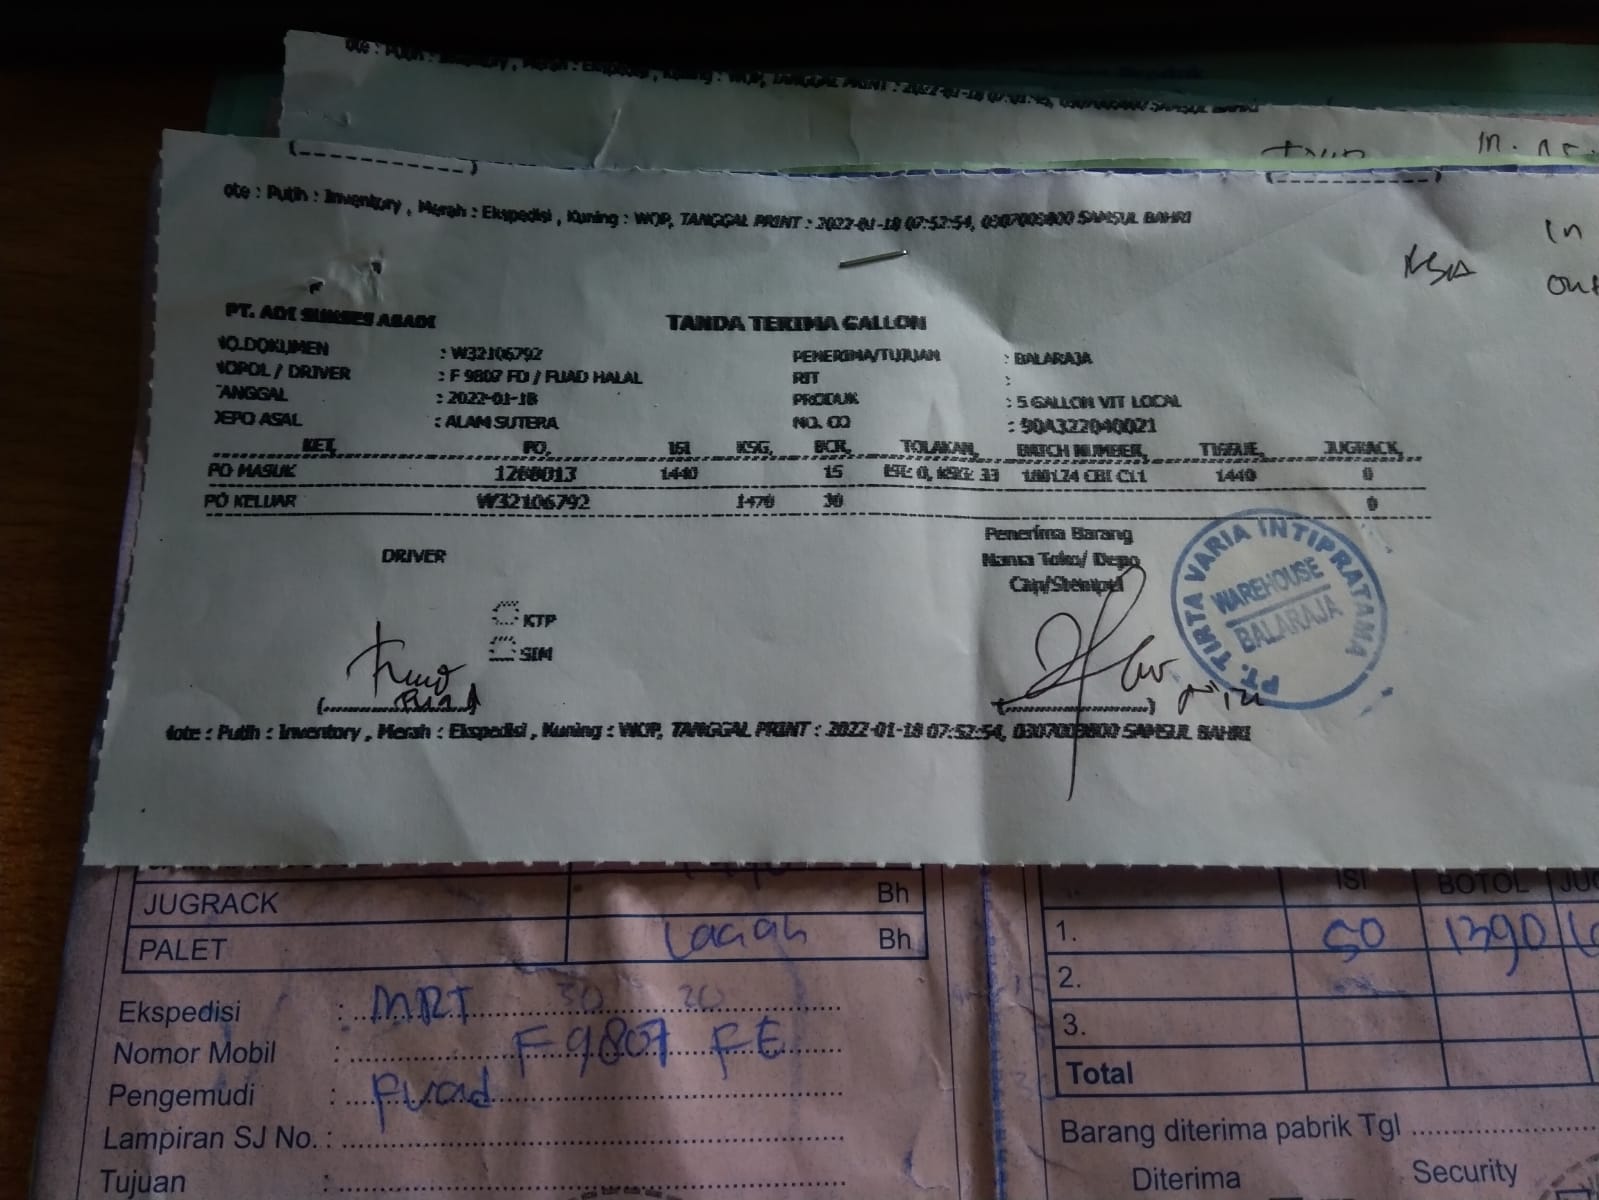 ote : Putih : Inventory , Merah : Ekspedisi , Kuning : WOP, TANGGAL PRINT : 2022-01-18 SAMSUL BAHRI
In
ote : Putih : Inventory , Merah : Ekspedisi , Kuning : WOP, TANGGAL PRINT : 2022-01-18 07:52:54, 0307009800 SAMSUL BAHRI
In
out
PT. ADI SUKSES ABADI
TANDA TERIMA GALLON
NO.DOKUMEN : W32106792 PENERIMA/TUJUAN : BALARAJA
NOPOL / DRIVER : F 9807 FD / FUAD HALAL RIT :
TANGGAL : 2022-01-18 PRODUK : 5 GALLON VIT LOCAL
DEPO ASAL : ALAM SUTERA NO. CO : 90A322040021
KET, PO, ISI KSG, BCR, TOLAKAN, BATCH NUMBER, TISSUE, JUGRACK,
PO MASUK 1268013 1440 15 ISI: 0, KSG: 33 180124 CBI C11 1440 0
PO KELUAR W32106792 1470 30 0
DRIVER
Penerima Barang
Nama Toko/ Depo
Cap/Stempel
PT. TIRTA VARIA INTIPRATAMA
WAREHOUSE
BALARAJA
KTP
SIM
Note : Putih : Inventory , Merah : Ekspedisi , Kuning : WOP, TANGGAL PRINT : 2022-01-18 07:52:54, 0307009800 SAMSUL BAHRI
JUGRACK Bh
PALET Bh
ISI BOTOL JUG
1. 50 1390
2.
3.
Total
Ekspedisi : MRT 30 30
Nomor Mobil : F 9807 FE
Pengemudi : Fuad
Lampiran SJ No. :
Tujuan :
Barang diterima pabrik Tgl
Diterima Security